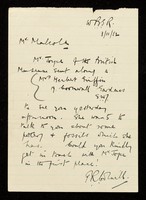 1/11/12
Mr Malcolm
Mr Joyce of the British
Museum sent along a
Mrs Herbert Griffin
of Cornwall Gardens
SW7
to see you yesterday
afternoon. She wants to
talk to you about some
pottery & fossils which she
has. Would you kindly
get in touch with Mr Joyce
in the first place?